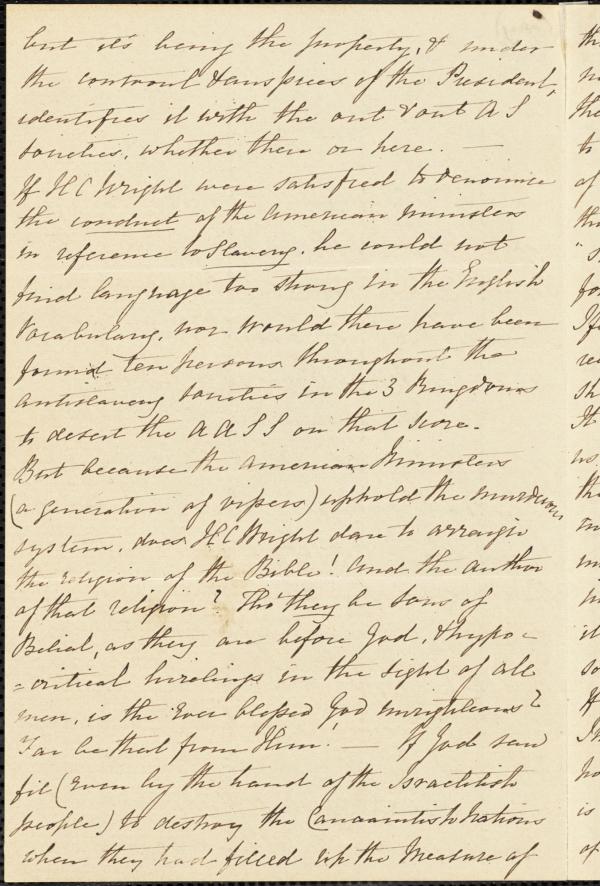 but it's being the property, & under
the controul & auspices of the President,
identifies it with the out & out A S
Societies, whether there or here. —
If H C Wright were satisfied to denounce
the conduct of the American Ministers
in reference to Slavery, he could not
find language too strong in the English
Vocabulary, nor would there have been
found ten persons throughout the
antislavery Societies in the 3 Kingdoms
to desert the A A S S on that score.
But because the American Ministers
(a generation of vipers) uphold the murderous
system, does H C Wright dare to arraign
the religion of the Bible! And the Author
of that religion? Tho' they be Sons of
Belial, as they are before God, & hypo-
=critical hirelings in the sight of all
men, is the Ever blessed God unrighteous?
Far be that from Him! — If God saw
fit (Even by the hand of the Israelitish
people) to destroy the Canaanitish Nations
when they had filled up the Measure of